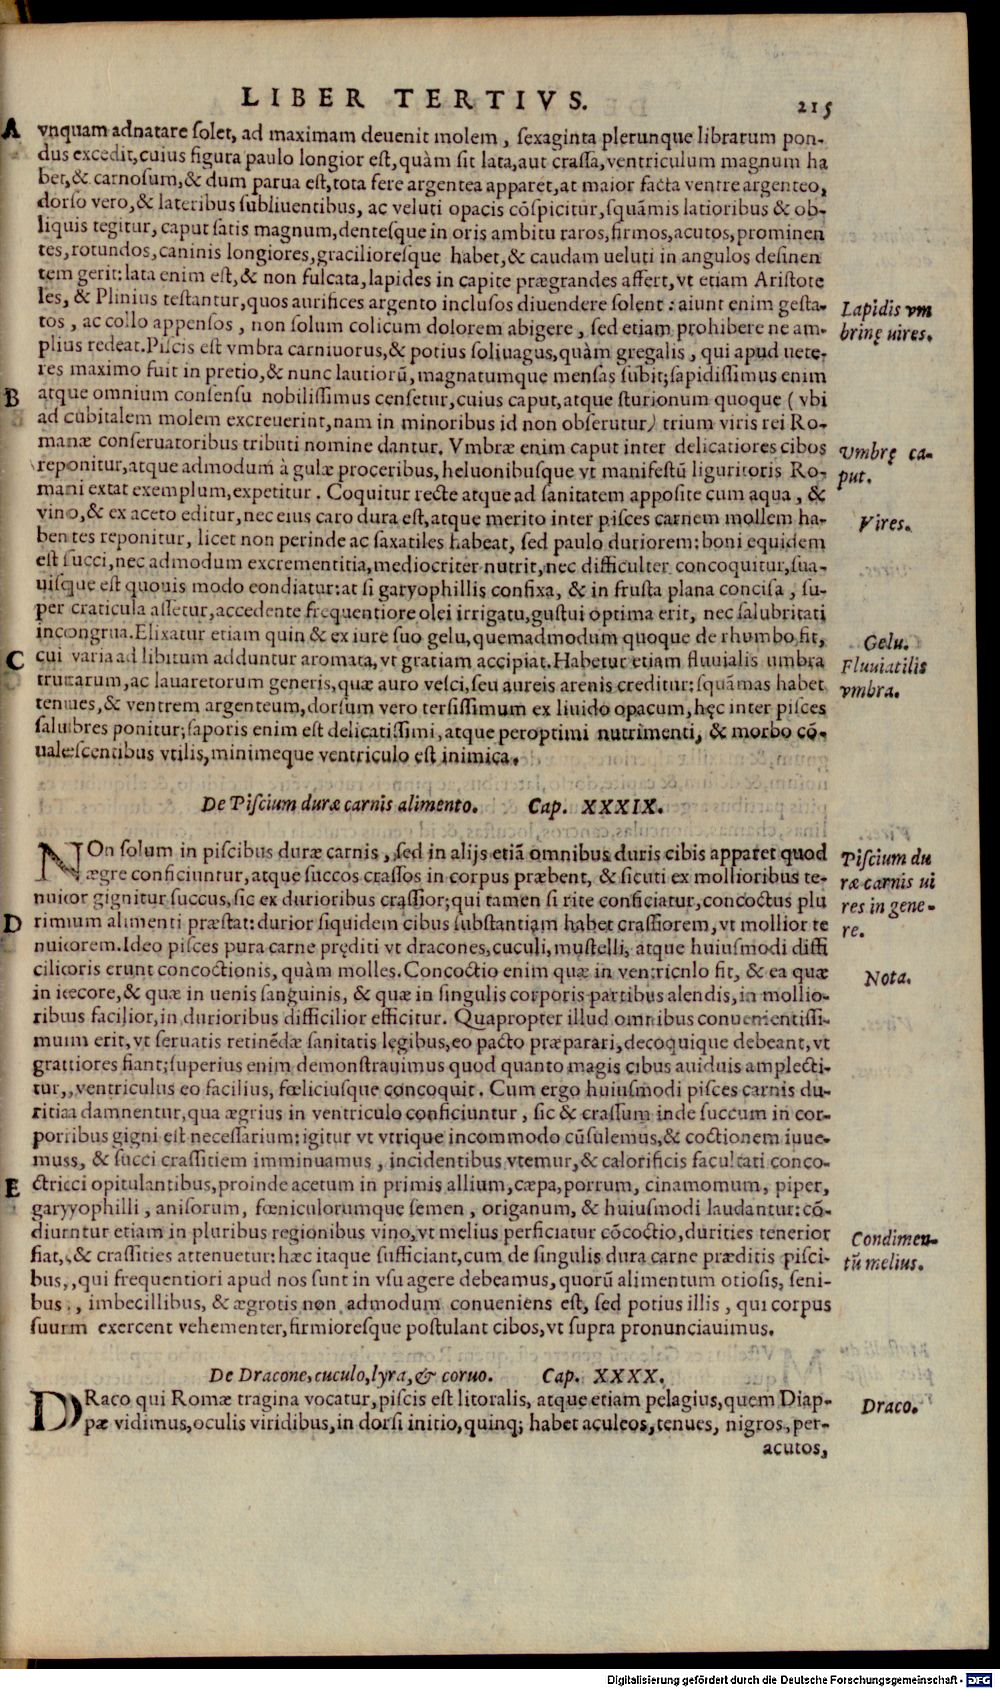 LIBER TERTIVS. 215
A vnquam adnatare solet, ad maximam deuenit molem, sexaginta plerunque librarum pon-
dus excedit, cuius figura paulo longior est, quàm sit lata, aut crassa, ventriculum magnum ha
bet, & carnosum, & dum parua est, tota fere argentea apparet, at maior facta ventre argenteo,
dorso vero, & lateribus subliuentibus, ac veluti opacis cõspicitur, squãmis latioribus & ob-
liquis tegitur, caput satis magnum, dentesque in oris ambitu raros, firmos, acutos, prominen
tes, rotundos, caninis longiores, gracilioresque habet, & caudam ueluti in angulos desinen
tem gerit: lata enim est, & non fulcata, lapides in capite prægrandes affert, vt etiam Aristote
les, & Plinius testantur, quos aurifices argento inclusos diuendere solent: aiunt enim gesta-
Lapidis vm
tos, ac collo appensos, non solum colicum dolorem abigere, sed etiam prohibere ne am-
brinę uires.
plius redeat. Piscis est vmbra carniuorus, & potius soliuagus, quàm gregalis, qui apud uete-
res maximo fuit in pretio, & nunc lautiorũ, magnatumque mensas subit; sapidissimus enim
B atque omnium consensu nobilissimus censetur, cuius caput, atque sturionum quoque (vbi
ad cubitalem molem excreuerint, nam in minoribus id non obserutur) trium viris rei Ro-
manæ conseruatoribus tributi nomine dantur. Vmbræ enim caput inter delicatiores cibos
Vmbrę ca-
reponitur, atque admodum à gulæ proceribus, heluonibusque vt manifestũ liguritoris Ro-
put.
mani extat exemplum, expetitur. Coquitur recte atque ad sanitatem apposite cum aqua, &
vino, & ex aceto editur, nec eius caro dura est, atque merito inter pisces carnem mollem ha-
Vires.
bentes reponitur, licet non perinde ac saxatiles habeat, sed paulo duriorem: boni equidem
est succi, nec admodum excrementitia, mediocriter nutrit, nec difficulter concoquitur, sua-
uisque est quouis modo eondiatur: at si garyophillis confixa, & in frusta plana concisa, su-
per craticula assetur, accedente frequentiore olei irrigatu, gustui optima erit, nec salubritati
incongrua. Elixatur etiam quin & ex iure suo gelu, quemadmodum quoque de rhumbo fit,
Gelu.
C cui varia ad libitum adduntur aromata, vt gratiam accipiat. Habetur etiam fluuialis umbra
Fluuiatilis
truttarum, ac lauaretorum generis, quæ auro vesci, seu aureis arenis creditur: squãmas habet
vmbra.
tenues, & ventrem argenteum, dorsum vero tersissimum ex liuido opacum, hęc inter pisces
salubres ponitur; saporis enim est delicatissimi, atque peroptimi nutrimenti, & morbo cõ-
ualescentibus vtilis, minimeque ventriculo est inimica.
De Piscium duræ carnis alimento. Cap. XXXIX.
NOn solum in piscibus duræ carnis, sed in alijs etiã omnibus duris cibis apparet quod
Piscium du
ægre conficiuntur, atque succos crassos in corpus præbent, & sicuti ex mollioribus te-
ræ carnis ui
nuior gignitur succus, sic ex durioribus crassior; qui tamen si rite conficiatur, concoctus plu
res in gene-
D rimium alimenti præstat: durior siquidem cibus substantiam habet crassiorem, vt mollior te
re.
nuiorem. Ideo pisces pura carne pręditi vt dracones, cuculi, mustelli, atque huiusmodi diffi
cilioris erunt concoctionis, quàm molles. Concoctio enim quæ in ventricnlo fit, & ea quæ
Nota.
in iecore, & quæ in uenis sanguinis, & quæ in singulis corporis partibus alendis, in mollio-
ribus facilior, in durioribus difficilior efficitur. Quapropter illud omnibus conuenientissi-
mum erit, vt seruatis retinẽdæ sanitatis legibus, eo pacto præparari, decoquique debeant, vt
gratiores fiant; superius enim demonstrauimus quod quanto magis cibus auiduis amplecti-
tur,, ventriculus eo facilius, fœliciusque concoquit. Cum ergo huiusmodi pisces carnis du-
ritiaa damnentur, qua ægrius in ventriculo conficiuntur, sic & crassum inde succum in cor-
porribus gigni est necessarium: igitur vt vtrique incommodo cũsulemus, & coctionem iuue-
muss, & succi crassitiem imminuamus, incidentibus vtemur, & calorificis facultati conco-
E ctricci opitulantibus, proinde acetum in primis allium, cæpa, porrum, cinamomum, piper,
garyyophilli, anisorum, fœniculorumque semen, origanum, & huiusmodi laudantur: cõ-
diurntur etiam in pluribus regionibus vino, vt melius perficiatur cõcoctio, durities tenerior
Condimen-
fiat,, & crassities attenuetur: hæc itaque sufficiant, cum de singulis dura carne præditis pisci-
tũ melius.
bus,, qui frequentiori apud nos sunt in vsu agere debeamus, quorũ alimentum otiosis, seni-
bus., imbecillibus, & ægrotis non admodum conueniens est, sed potius illis, qui corpus
suurm exercent vehementer, firmioresque postulant cibos, vt supra pronunciauimus.
De Dracone, cuculo, lyra, & coruo. Cap. XXXX.
DRaco qui Romæ tragina vocatur, piscis est litoralis, atque etiam pelagius, quem Diap-
Draco.
pæ vidimus, oculis viridibus, in dorsi initio, quinq; habet aculeos, tenues, nigros, per-
acutos,
Digitalisierung gefördert durch die Deutsche Forschungsgemeinschaft - DFG